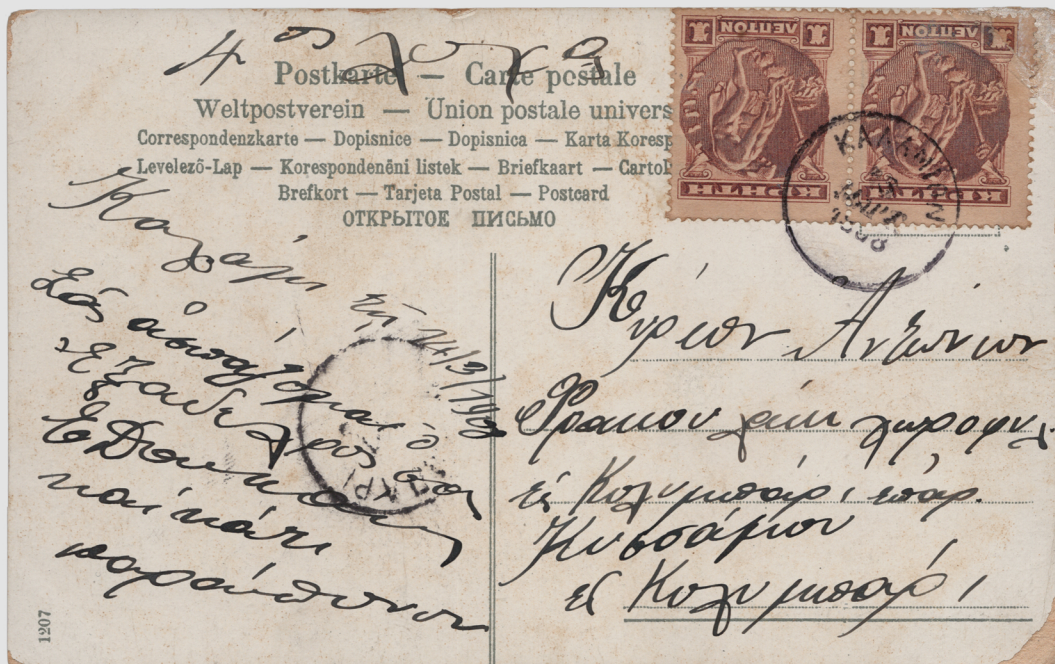 4ος λόχος
Postkarte — Carte postale
Weltpostverein — Union postale univers
Correspondenzkarte — Dopisnice — Dopisnica — Karta Koresp
Levelező-Lap — Korespondenční listek — Briefkaart — Cartol
Brefkort — Tarjeta Postal — Postcard
ОТКРЫТОЕ ПИСЬМО
1 ΛΕΠΤΟΝ 1
ΚΡΗΤΗ
1 ΛΕΠΤΟΝ 1
ΚΡΗΤΗ
1908
Καλάμι
τῇ 14/3/1908
Σᾶς ἀσπάζομαι ὁ
ἐξάδελφός σας
καὶ κάτι
παράπονον
Κύριον Ἀντώνιον
Φρακουλάκη
εἰς Κολυμπάρι ἐπαρ.
Κισσάμου
εἰς Κολυμπάρι
1207